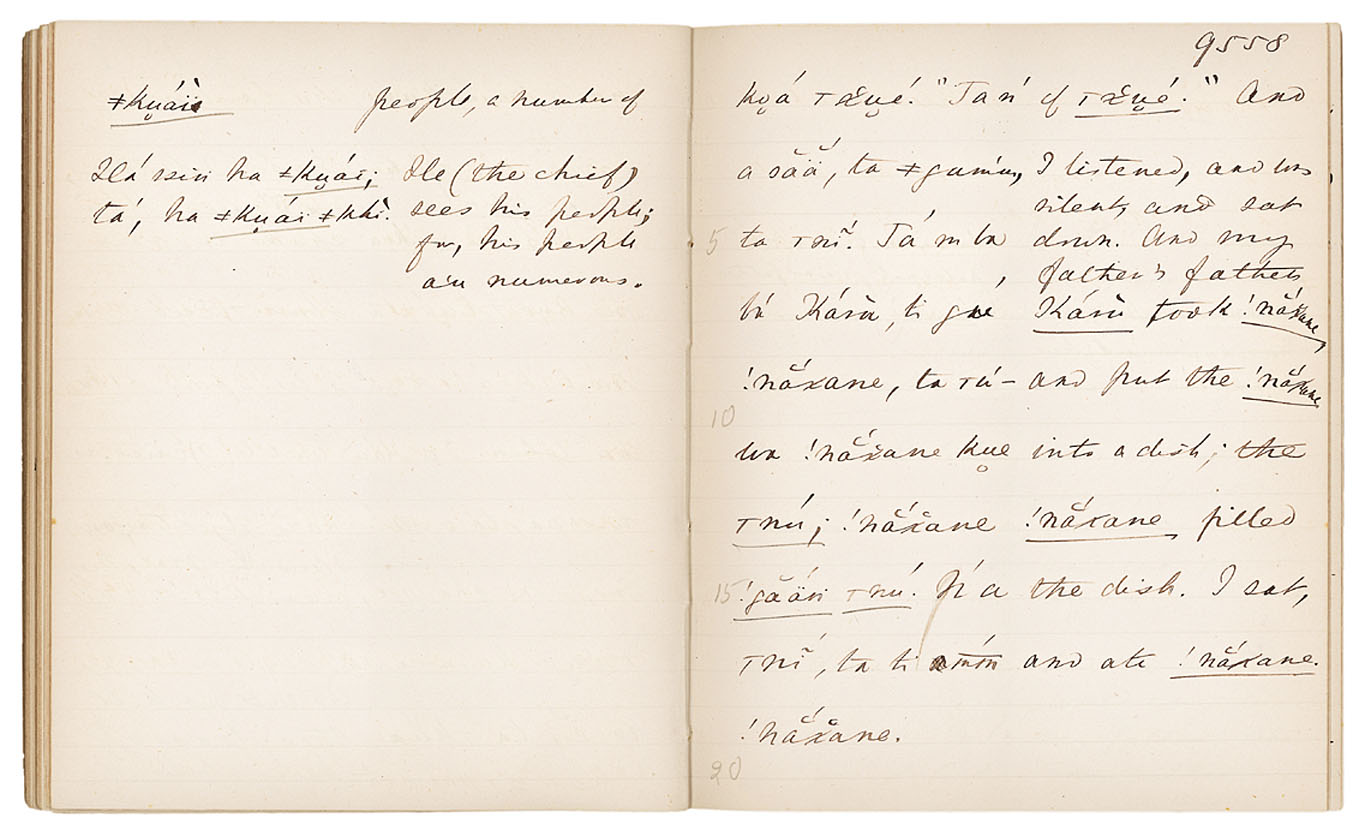 ǂku̯áïs people, a number of
Há ssin ha ǂku̯ái; He (the chief)
tá, ha ǂku̯ái ǂkhi. sees his people;
for, his people
are numerous.
9558
ku̯á Tx̆u̯é. "Tań of Tx̆u̯é." And
a săä́, ta ǂgumm, I listened, and was
silent, and sat
5 ta Tnĭ. Tá m ba down. And my
father's father
bá Káru, ti gué Karu took !nắxane,
!nắxane, ta Tú- and put the !nắxane
10
wa !nắx̆ane ku̯e into a dish; the
Tnú; !nắx̆ane !nắxane filled
15 !găä́n Tnú. Ń a the dish. I sat,
Tnĭ́, ta ti ḿm and ate !nắxane.
!nắx̆ane.
20